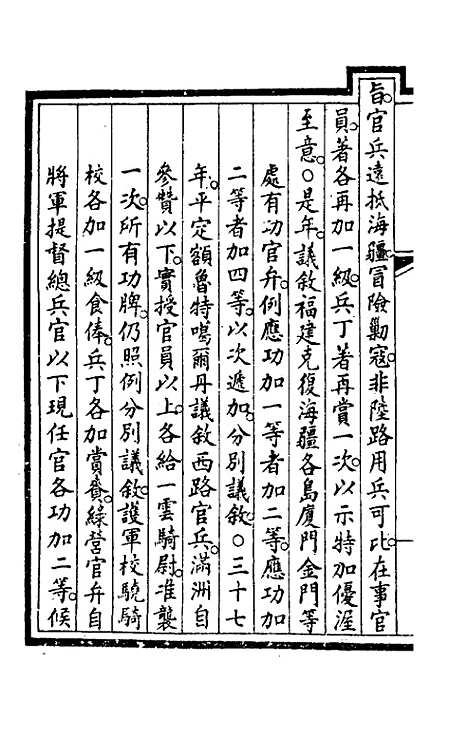 旨。官兵遠抵海疆。冒險勦寇。非陸路用兵可比。在事官
員。著各再加一級。兵丁著再賞一次。以示特加優渥
至意。○是年。議敘福建克復海疆各島廈門金門等
處有功官弁。例應功加一等者加二等。應功加
二等者加四等。以次遞加。分別議敘。○三十七
年。平定額魯特噶爾丹議敘西路官兵。滿洲自
參贊以下。實授官員以上。各給一雲騎尉。准襲
一次。所有功牌。仍照例分別議敘。護軍校驍騎
校各加一級食俸。兵丁各加賞賚。綠營官弁自
將軍提督總兵官以下現任官各功加二等。候